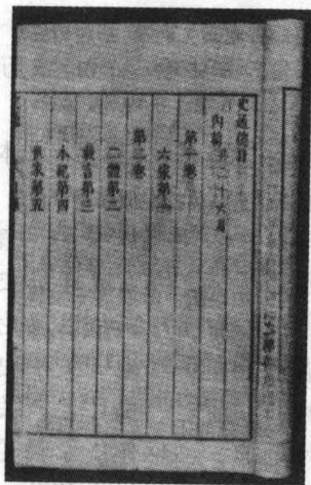 史通總目
內篇
第一卷
六家第一
第二卷
二體第二
載言第三
本紀第四
世家第五